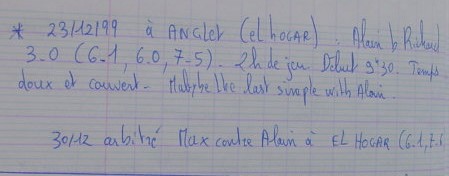 * 23/12/99 à ANGLET (el HOGAR) : Alain b Richard
3.0 (6.1, 6.0, 7-5). 2h de jeu Début 9h30. Temps
doux et couvert. Maybe the last simple with Alain.
30/12 arbitré Max contre Alain à EL HOGAR (6.1, 7.6